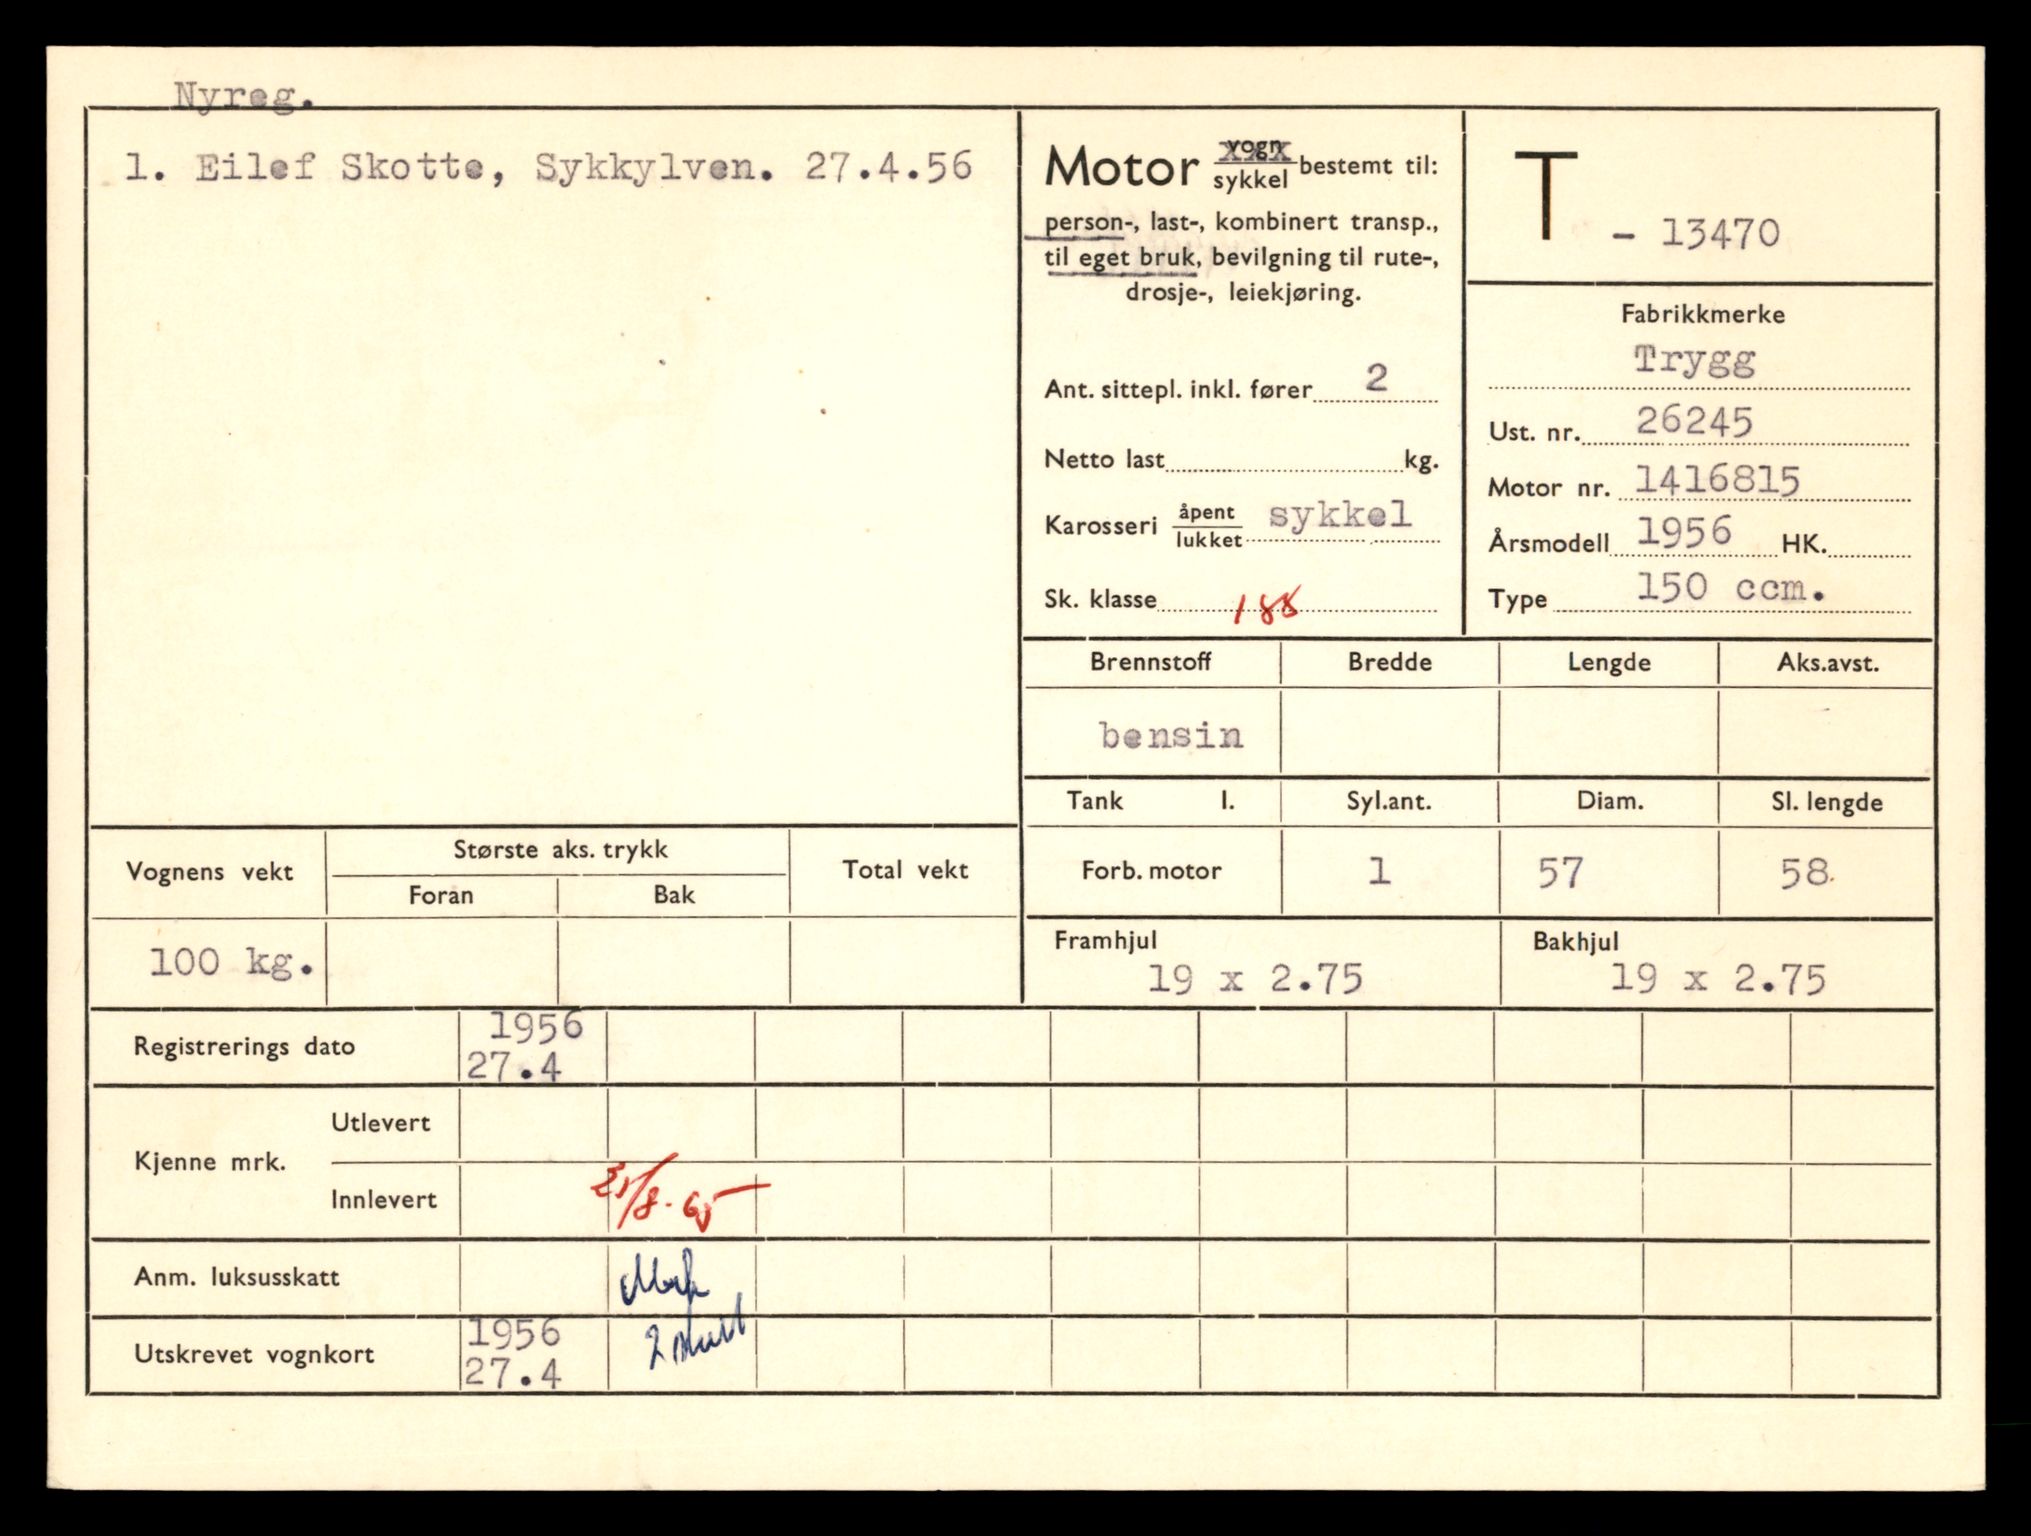 Nyreg.
1. Eilef Skotte, Sykkylven. 27.4.56
Motor vogn/sykkel bestemt til:
person-, last-, kombinert transp.,
til eget bruk, bevilgning til rute-,
drosje-, leiekjøring.
Ant. sittepl. inkl. fører 2
Netto last kg.
Karosseri åpent/lukket sykkel
Sk. klasse 188
T - 13470
Fabrikkmerke
Trygg
Ust. nr. 26245
Motor nr. 1416815
Årsmodell 1956 HK.
Type 150 ccm.
Brennstoff Bredde Lengde Aks.avst.
bensin
Tank l. Syl.ant. Diam. Sl. lengde
Forb. motor 1 57 58
Framhjul Bakhjul
19 x 2.75 19 x 2.75
Vognens vekt Største aks. trykk Total vekt
Foran Bak
100 kg.
Registrerings dato 1956
27.4
Kjenne mrk. Utlevert
Innlevert /8-65
Anm. luksusskatt
Utskrevet vognkort 1956
27.4